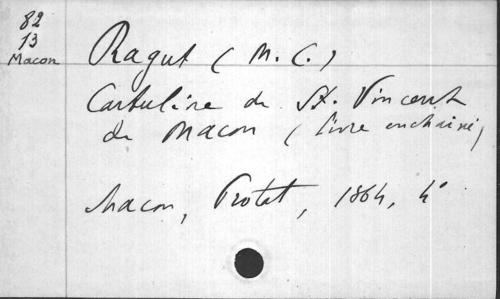 82
13
Macon
Ragut (M. C.)
Cartulaire de St. Vincent
de Macon (livre enchainé)
Macon, Protat, 1864, 4°